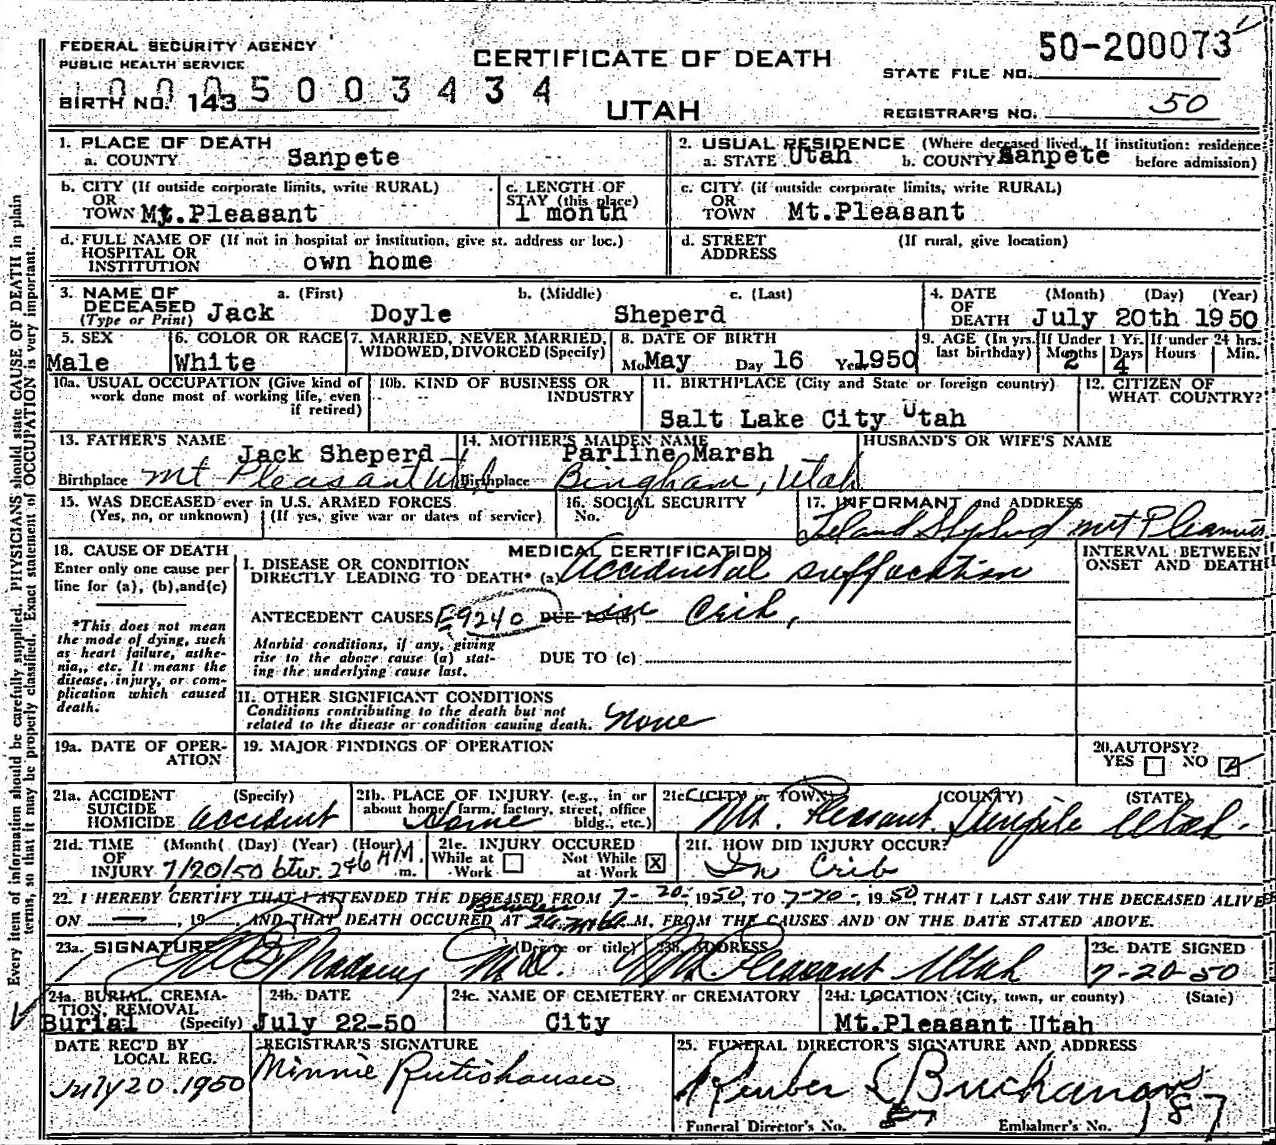 FEDERAL SECURITY AGENCY
PUBLIC HEALTH SERVICE
CERTIFICATE OF DEATH
UTAH
50-200073
STATE FILE NO.
BIRTH NO. 143
0005003434
REGISTRAR'S NO. 50
Every item of information should be carefully supplied. PHYSICIANS should state CAUSE OF DEATH in plain
terms, so that it may be properly classified. Exact statement of OCCUPATION is very important.
1. PLACE OF DEATH
a. COUNTY Sanpete
2. USUAL RESIDENCE (Where deceased lived. If institution: residence
a. STATE Utah b. COUNTY Sanpete before admission)
b. CITY (If outside corporate limits, write RURAL)
OR
TOWN Mt.Pleasant
c. LENGTH OF
STAY (this place)
1 month
c. CITY (if outside corporate limits, write RURAL)
OR
TOWN Mt.Pleasant
d. FULL NAME OF (If not in hospital or institution, give st. address or loc.)
HOSPITAL OR
INSTITUTION own home
d. STREET (If rural, give location)
ADDRESS
3. NAME OF a. (First) b. (Middle) c. (Last)
DECEASED Jack Doyle Sheperd
(Type or Print)
4. DATE (Month) (Day) (Year)
OF
DEATH July 20th 1950
5. SEX
Male
6. COLOR OR RACE
White
7. MARRIED, NEVER MARRIED,
WIDOWED, DIVORCED (Specify)
8. DATE OF BIRTH
Mo. May Day 16 Year 1950
9. AGE (In yrs.
last birthday)
If Under 1 Yr.
Months Days
2 4
If under 24 hrs.
Hours Min.
10a. USUAL OCCUPATION (Give kind of
work done most of working life, even
if retired)
10b. KIND OF BUSINESS OR
INDUSTRY
11. BIRTHPLACE (City and State or foreign country)
Salt Lake City Utah
12. CITIZEN OF
WHAT COUNTRY?
13. FATHER'S NAME
Jack Sheperd
Birthplace Mt Pleasant Utah
14. MOTHER'S MAIDEN NAME
Parline Marsh
Birthplace Bingham, Utah
HUSBAND'S OR WIFE'S NAME
15. WAS DECEASED ever in U.S. ARMED FORCES
(Yes, no, or unknown) (If yes, give war or dates of service)
16. SOCIAL SECURITY
No.
17. INFORMANT and ADDRESS
Leland Mt Pleasant
18. CAUSE OF DEATH
Enter only one cause per
line for (a), (b), and (c)
*This does not mean
the mode of dying, such
as heart failure, asthe-
nia, etc. It means the
disease, injury, or com-
plication which caused
death.
MEDICAL CERTIFICATION
I. DISEASE OR CONDITION
DIRECTLY LEADING TO DEATH* (a) Accidental suffocation
ANTECEDENT CAUSES E9240 DUE TO (b) in Crib,
Morbid conditions, if any, giving
rise to the above cause (a) stat-
ing the underlying cause last.
DUE TO (c)
INTERVAL BETWEEN
ONSET AND DEATH
II. OTHER SIGNIFICANT CONDITIONS
Conditions contributing to the death but not
related to the disease or condition causing death. None
19a. DATE OF OPER-
ATION
19. MAJOR FINDINGS OF OPERATION
20. AUTOPSY?
YES NO
21a. ACCIDENT (Specify)
SUICIDE
HOMICIDE accident
21b. PLACE OF INJURY (e.g., in or
about home, farm, factory, street, office
bldg., etc.) Home
21c. (CITY or TOWN) (COUNTY) (STATE)
Mt. Pleasant. Sanpete Utah.
21d. TIME (Month) (Day) (Year) (Hour)
OF
INJURY 7/20/50 btw. 2&6 AM. m.
21e. INJURY OCCURED
While at Work Not While at Work X
21f. HOW DID INJURY OCCUR?
In Crib
22. I HEREBY CERTIFY THAT I ATTENDED THE DECEASED FROM 7-20, 1950 TO 7-20, 1950, THAT I LAST SAW THE DECEASED ALIVE
ON ——, 19 AND THAT DEATH OCCURED AT M, FROM THE CAUSES AND ON THE DATE STATED ABOVE.
23a. SIGNATURE (Degree or title)
Madsen M.D.
23b. ADDRESS
Mt Pleasant Utah
23c. DATE SIGNED
7-20-50
24a. BURIAL, CREMA-
TION, REMOVAL
Burial (Specify)
24b. DATE
July 22-50
24c. NAME OF CEMETERY or CREMATORY
City
24d. LOCATION (City, town, or county) (State)
Mt.Pleasant Utah
DATE REC'D BY
LOCAL REG.
July 20.1950
REGISTRAR'S SIGNATURE
Minnie Rutishauser
25. FUNERAL DIRECTOR'S SIGNATURE AND ADDRESS
Reuber Buchanan
Funeral Director's No. 57 Embalmer's No. 187